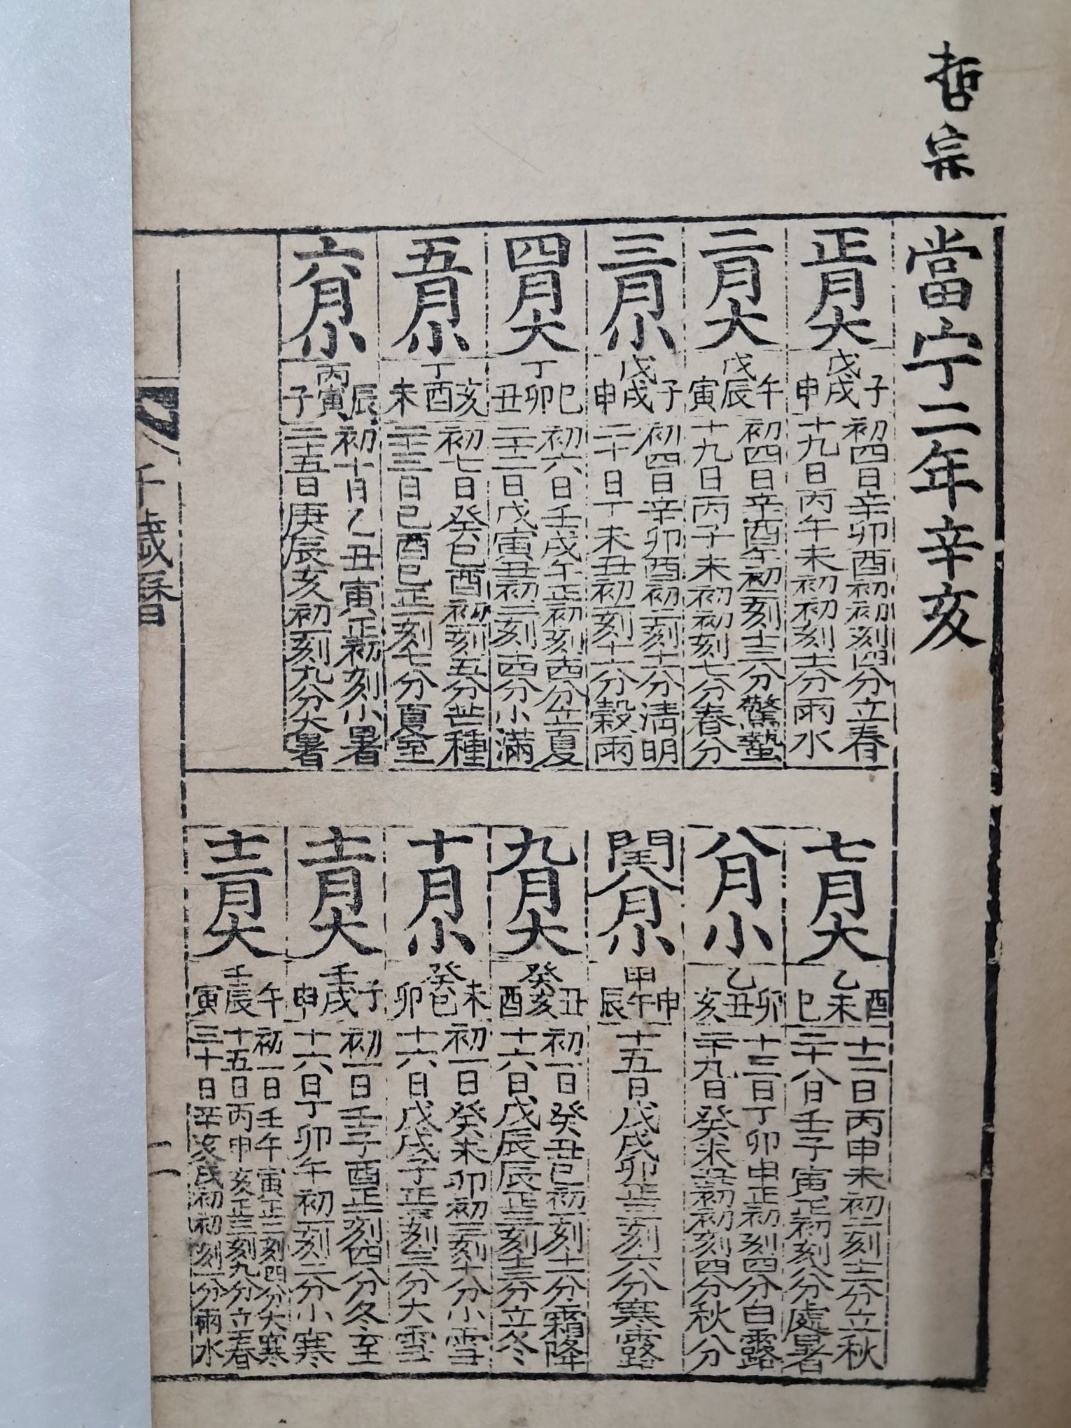 哲宗
當宁二年辛亥
正月大
戊
子戌申
初四日辛卯酉初初刻四分立春
十九日丙午未初初刻十一分雨水
二月大
戊
午辰寅
初四日辛酉午初一刻十三分驚蟄
十九日丙子未初初刻七分春分
三月小
戊
子戌申
初四日辛卯酉初一刻十二分淸明
二十日丁未丑初一刻十六分穀雨
四月大
丁
巳卯丑
初六日壬戌午正初刻四分立夏
二十二日戊寅丑初一刻四分小滿
五月小
丁
亥酉未
初七日癸巳酉初初刻五分芒種
二十三日己酉巳正一刻七分夏至
六月小
丙
辰寅子
初十日乙丑寅正初刻小暑
二十五日庚辰亥初一刻九分大暑
七月大
乙
酉未巳
十二日丙申未初一刻十二分立秋
二十八日壬子寅正初刻八分處暑
八月小
乙
卯丑亥
十三日丁卯申正初刻四分白露
二十九日癸未丑初初刻四分秋分
閏八月小
甲
申午辰
十五日戊戌卯正三刻六分寒露
九月大
癸
丑亥酉
初一日癸丑巳初一刻十一分霜降
十六日戊辰辰正三刻十三分立冬
十月小
癸
未巳卯
初一日癸未卯初三刻十分小雪
十六日戊戌子正三刻三分大雪
十一月大
壬
子戌申
初一日壬子酉正一刻四分冬至
十六日丁卯午初一刻二分小寒
十二月大
壬
午辰寅
初一日壬午寅正二刻四分大寒
十五日丙申亥正三刻九分立春
三十日辛亥戌初初刻一分雨水
千歲曆
二